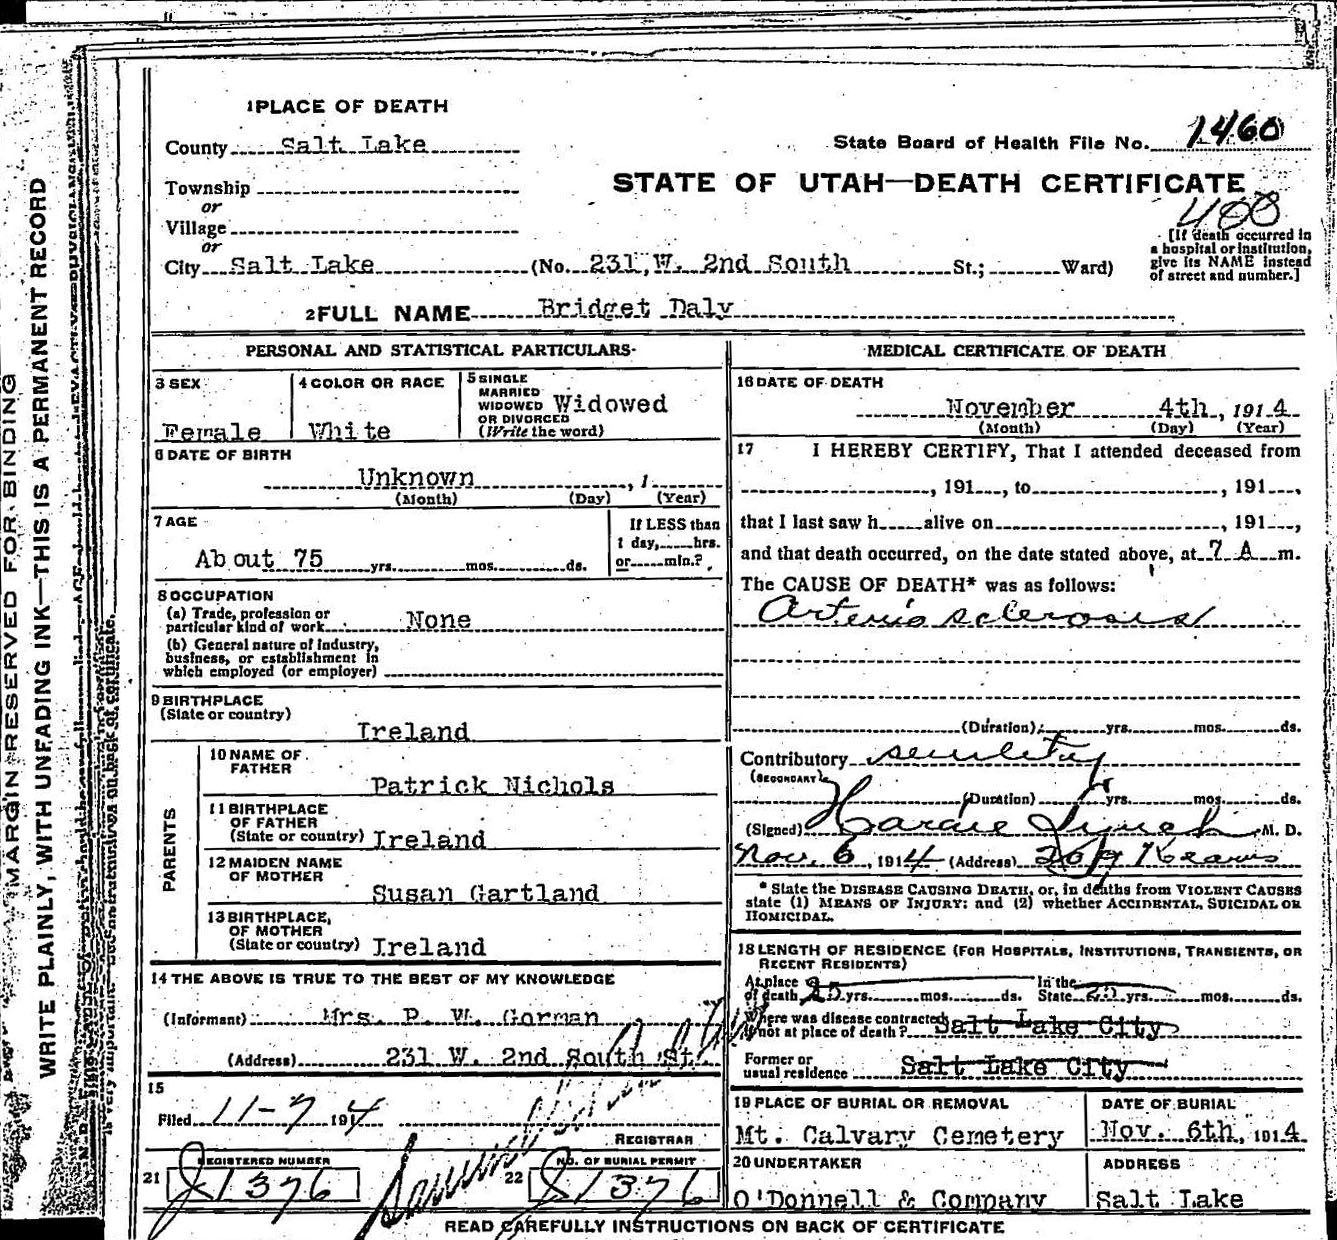 1 PLACE OF DEATH
County Salt Lake
State Board of Health File No. 1460
Township
or
Village
or
STATE OF UTAH—DEATH CERTIFICATE
400
[If death occurred in a hospital or institution, give its NAME instead of street and number.]
City Salt Lake (No. 231, W. 2nd South St.; Ward)
2 FULL NAME Bridget Daly
PERSONAL AND STATISTICAL PARTICULARS
3 SEX Female
4 COLOR OR RACE White
5 SINGLE MARRIED WIDOWED OR DIVORCED (Write the word) Widowed
6 DATE OF BIRTH
Unknown , 1
(Month) (Day) (Year)
7 AGE
About 75 yrs. mos. ds.
If LESS than 1 day, hrs. or min.?
8 OCCUPATION
(a) Trade, profession or
particular kind of work None
(b) General nature of industry,
business, or establishment in
which employed (or employer)
9 BIRTHPLACE
(State or country)
Ireland
PARENTS
10 NAME OF FATHER
Patrick Nichols
11 BIRTHPLACE OF FATHER
(State or country) Ireland
12 MAIDEN NAME OF MOTHER
Susan Gartland
13 BIRTHPLACE, OF MOTHER
(State or country) Ireland
14 THE ABOVE IS TRUE TO THE BEST OF MY KNOWLEDGE
(Informant) Mrs. P. W. Gorman
(Address) 231 W. 2nd South St.
15
Filed 11-7 1914
REGISTRAR
21 REGISTERED NUMBER
J1376
22 NO. OF BURIAL PERMIT
J1376
MEDICAL CERTIFICATE OF DEATH
16 DATE OF DEATH
November 4th, 1914
(Month) (Day) (Year)
17 I HEREBY CERTIFY, That I attended deceased from
, 191 , to , 191 ,
that I last saw h alive on , 191 ,
and that death occurred, on the date stated above, at 7 A m.
The CAUSE OF DEATH* was as follows:
Arterio sclerosis
(Duration) yrs. mos. ds.
Contributory senility
(SECONDARY)
(Duration) yrs. mos. ds.
(Signed) Hardie Lynch M. D.
Nov. 6, 1914 (Address) Kearns
* State the DISEASE CAUSING DEATH, or, in deaths from VIOLENT CAUSES
state (1) MEANS OF INJURY; and (2) whether ACCIDENTAL, SUICIDAL OR
HOMICIDAL.
18 LENGTH OF RESIDENCE (FOR HOSPITALS, INSTITUTIONS, TRANSIENTS, OR
RECENT RESIDENTS)
At place of death 25 yrs. mos. ds. In the State 25 yrs. mos. ds.
Where was disease contracted
if not at place of death? Salt Lake City
Former or
usual residence Salt Lake City
19 PLACE OF BURIAL OR REMOVAL
Mt. Calvary Cemetery
DATE OF BURIAL
Nov. 6th, 1914
20 UNDERTAKER
O'Donnell & Company
ADDRESS
Salt Lake
READ CAREFULLY INSTRUCTIONS ON BACK OF CERTIFICATE
MARGIN RESERVED FOR BINDING
WRITE PLAINLY, WITH UNFADING INK—THIS IS A PERMANENT RECORD
is very important. on back of certificate.